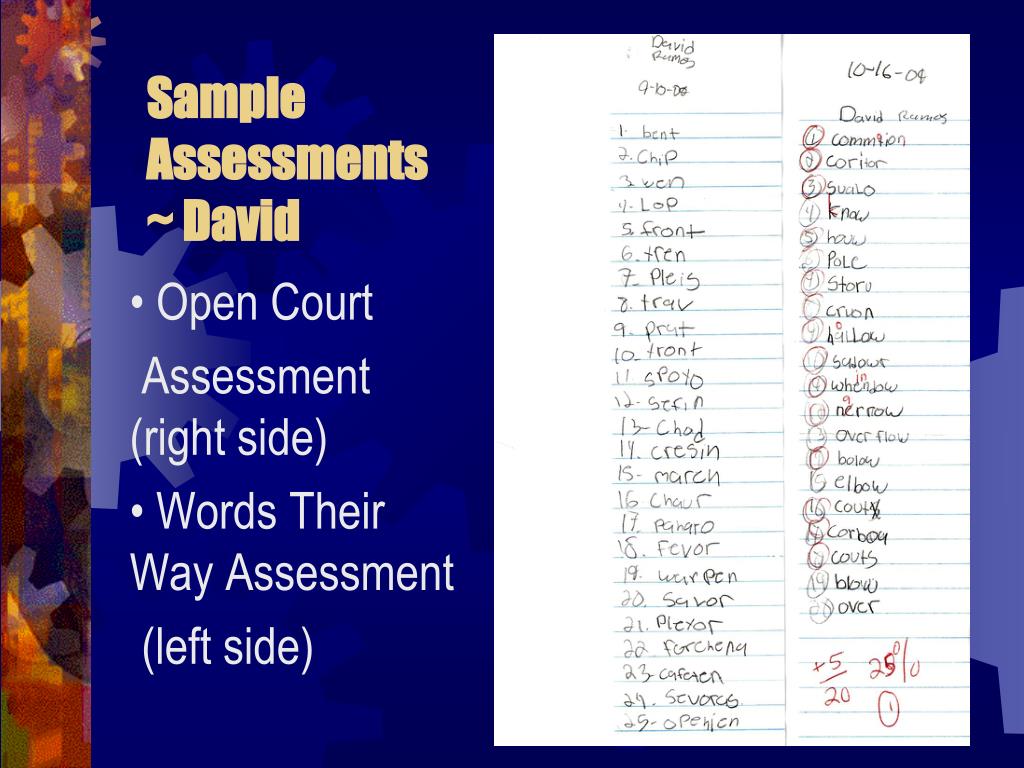 Sample
Assessments
~ David
• Open Court
Assessment
(right side)
• Words Their
Way Assessment
(left side)
David
Ramos
9-10-04
1. bent
2. Chip
3. ven
4. LoP
5. front
6. tren
7. Pleis
8. trav
9. prut
10. front
11. spoyo
12. serin
13- Chad
14. cresin
15- march
16 Chaur
17. Panaro
18. Fevor
19. wurpen
20. Savor
21. Pleyor
22 forcheng
23- cafeten
24. Severes
25- openien
10-16-04
David Ramos
1 commtion
2 coritor
3 sualo
4 know
5 hauw
6 Pole
7 Storu
8 cruon
9 hallow
10 sadowr
whendow
in
12 nerrow
a
13 over flow
bolow
15 elbow
16 couty
Corboy
couts
19 blow
20 over
+5
20
25%
1